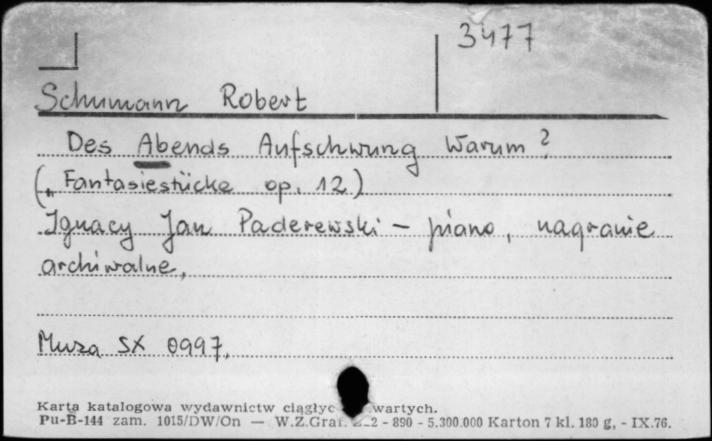 3477
Schumann Robert
Des Abends Aufschwung Warum?
(„Fantasiestücke op. 12)
Ignacy Jan Paderewski – piano, nagranie
archiwalne,
Muza SX 0997,
Karta katalogowa wydawnictw ciągłyc wartych.
Pu-B-144 zam. 1015/DW/On — W.Z.Graf. 2 - 890 - 5.300.000 Karton 7 kl. 180 g, - IX.76.